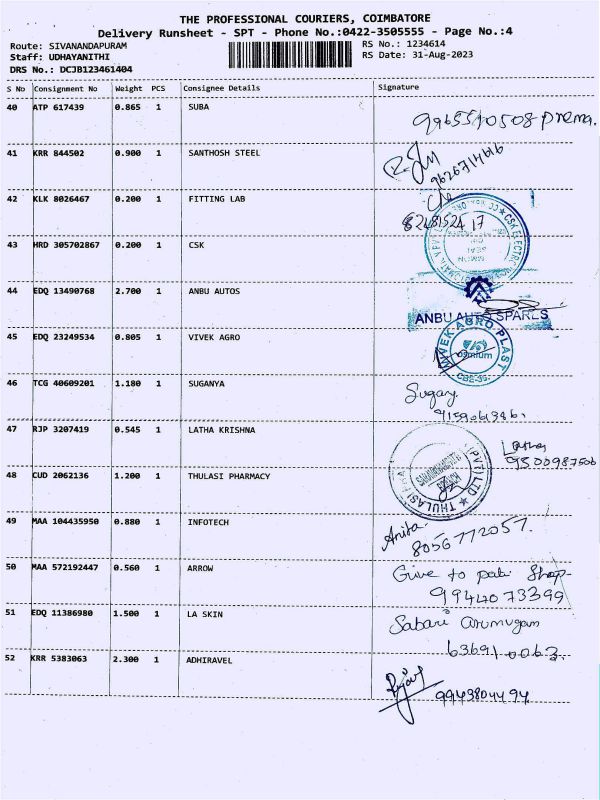 THE PROFESSIONAL COURIERS, COIMBATORE
Delivery Runsheet - SPT - Phone No.:0422-3505555 - Page No.:4
Route: SIVANANDAPURAM RS No.: 1234614
Staff: UDHAYANITHI RS Date: 31-Aug-2023
DRS No.: DCJB123461404
S No Consignment No Weight PCS Consignee Details Signature
40 ATP 617439 0.865 1 SUBA
9965510508 Prema.
41 KRR 844502 0.900 1 SANTHOSH STEEL
42 KLK 8026467 0.200 1 FITTING LAB
43 HRD 305702867 0.200 1 CSK
CSK ELECTRONICS
44 EDQ 13490768 2.700 1 ANBU AUTOS
ANBU AUTO SPARES
45 EDQ 23249534 0.805 1 VIVEK AGRO
VIVEK AGRO PLAST
CBE-35.
46 TCG 40609201 1.180 1 SUGANYA
Sugany.
47 RJP 3207419 0.545 1 LATHA KRISHNA
Latha
9500987506
48 CUD 2062136 1.200 1 THULASI PHARMACY
THULASI (PVT) LTD
49 MAA 104435950 0.880 1 INFOTECH
Anita
8056772057.
50 MAA 572192447 0.560 1 ARROW
Give to pabi Shop
9944073399
51 EDQ 11386980 1.500 1 LA SKIN
Sabari arumugam
636910063.
52 KRR 5383063 2.300 1 ADHIRAVEL
9943804494